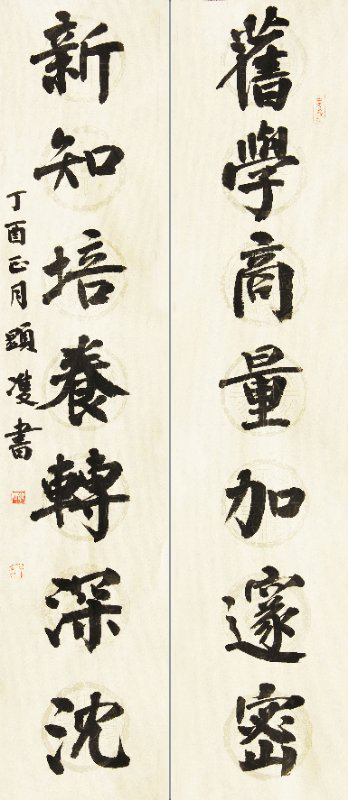 舊學商量加邃密
新知培養轉深沈
丁酉正月顯雙書